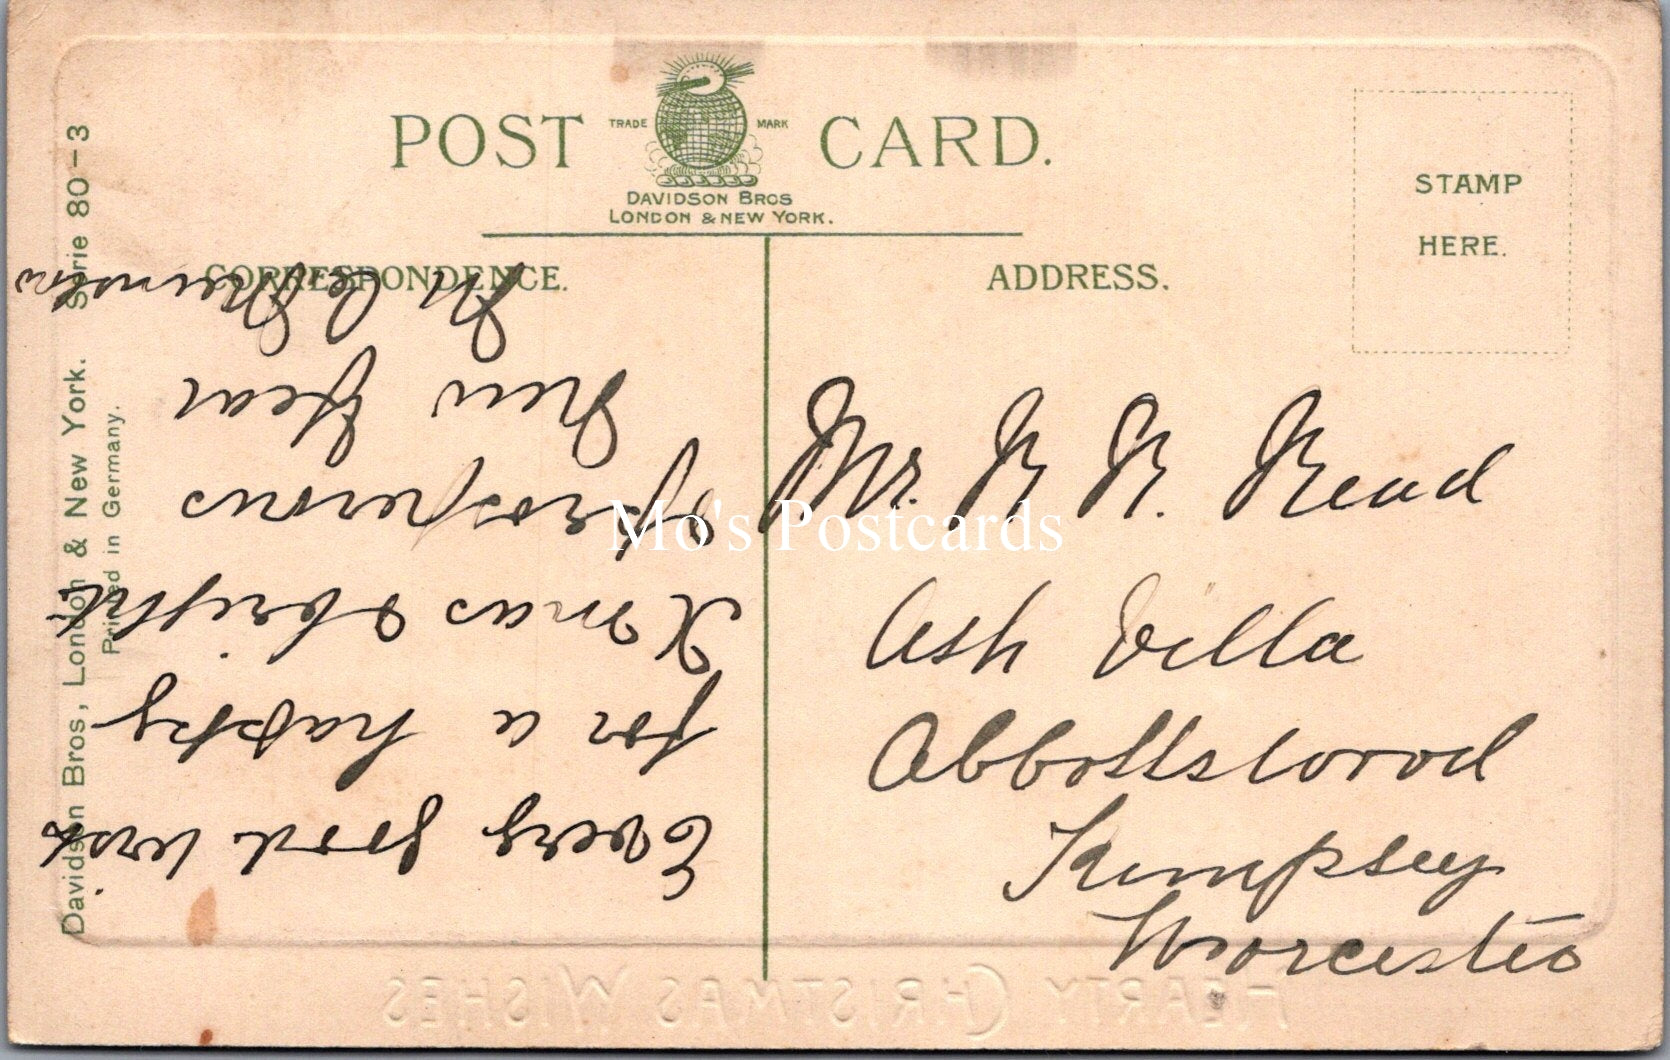 POST CARD.
TRADE MARK
DAVIDSON BROS
LONDON & NEW YORK.
STAMP
HERE.
CORRESPONDENCE.
ADDRESS.
Every good wish
for a happy
Xmas & bright
& prosperous
New Year
Mr. R. R. Read
Ash Villa
Abbottswood
Kempsey
Worcester
Davidson Bros, London & New York. Serie 80-3
Printed in Germany.
HEARTY CHRISTMAS WISHES
Mo's Postcards